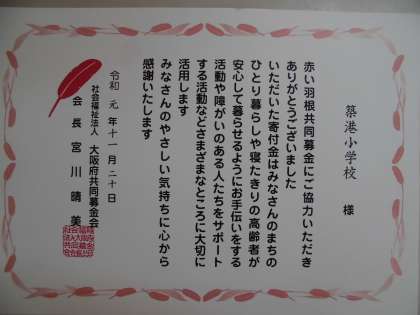 築港小学校 様
赤い羽根共同募金にご協力いただき
ありがとうございました
いただいた寄付金はみなさんのまちの
ひとり暮らしや寝たきりの高齢者が
安心して暮らせるようにお手伝いをする
活動や障がいのある人たちをサポート
する活動などさまざまなところに大切に
活用します
みなさんのやさしい気持ちに心から
感謝いたします
令和 元年十一月二十日
社会福祉法人 大阪府共同募金会
会長 宮川晴美